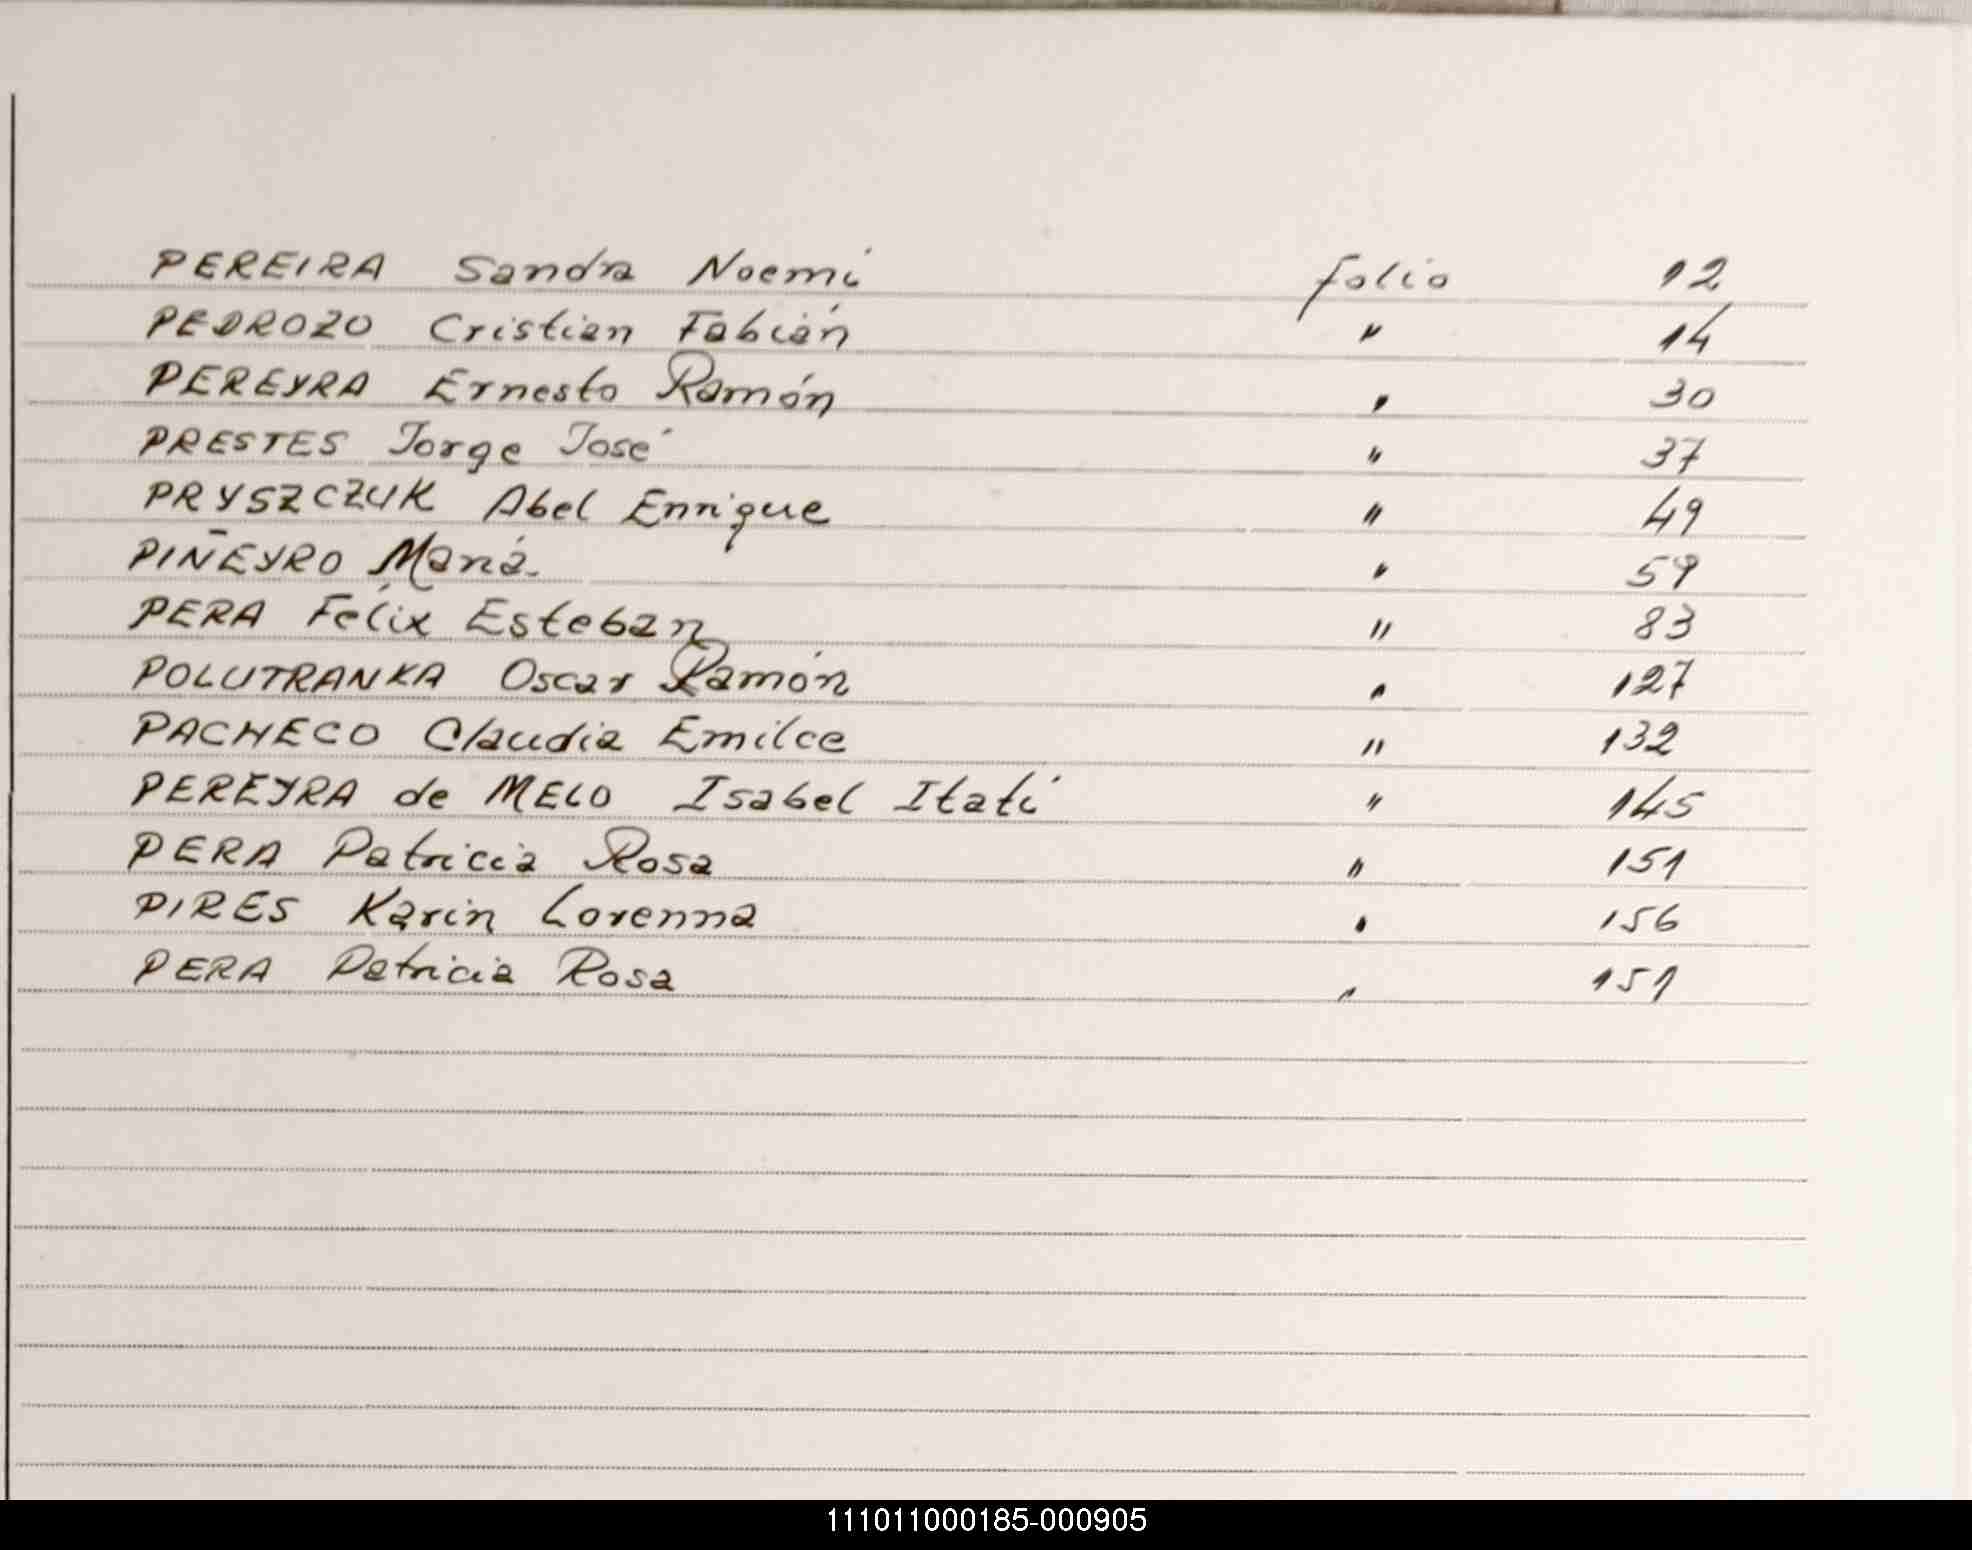 PEREIRA Sandra Noemí folio 12
PEDROZO Cristian Fabián " 14
PEREYRA Ernesto Ramón " 30
PRESTES Jorge José " 37
PRYSZCZUK Abel Enrique " 49
PIÑEYRO María " 59
PERA Félix Esteban " 83
POLUTRANKA Oscar Ramón " 127
PACHECO Claudia Emilce " 132
PEREYRA de MELO Isabel Itatí " 145
PERA Patricia Rosa " 151
PIRES Karin Lorenna " 156
PERA Patricia Rosa " 151
111011000185-000905